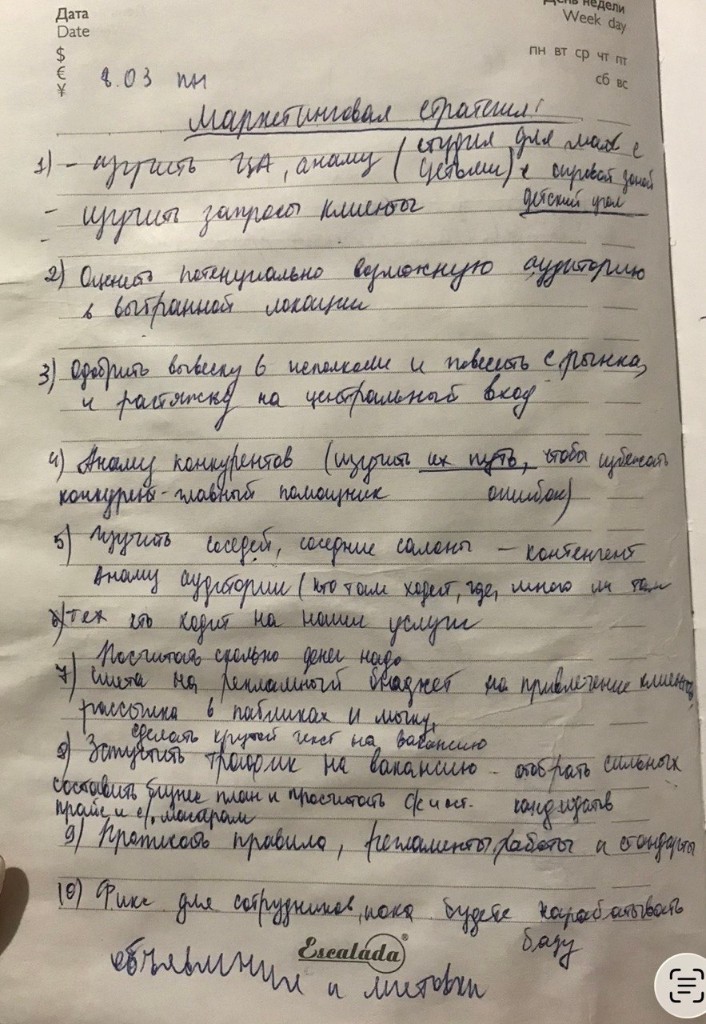 Дата
Date
День недели
Week day
$
€
¥
пн вт ср чт пт
сб вс
8.03 пн
Маркетинговая стратегия!
1) - изучить ЦА, анализ (студия для мам с
детьми) с игровой зоной
- изучить запросы клиенты детский угол
-
2) Оценить потенциально возможную аудиторию
в выбранной локации
3) Одобрить вывеску в исполкоме и повесить с рынка,
и растяжку на центральный вход
4) Анализ конкурентов (изучить их путь, чтобы избежать
конкурент - главный помощник ошибок)
5) Изучить соседей, соседние салоны - контенгент
Анализ аудитории (кто там ходит, где, много ли там
6) тех кто ходит на наши услуги
Посчитать сколько денег надо
7) Смета на рекламный бюджет на привлечение клиентов,
рассылка в пабликах и
сделать крутой текст на вакансию
8) Запустить трафик на вакансию - отобрать сильных
составить бизнес план и просчитать с/с и ост. кандидатов
прайс и с/с мастерам
9) Прописать правила, регламенты работы и стандарты
10) Фикс для сотрудников, пока будете нарабатывать
базу
Escalada®
объявления и листовки